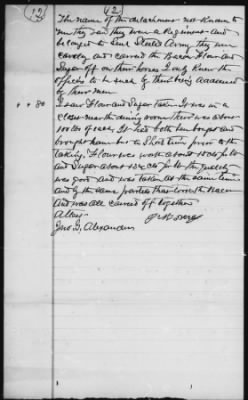 12 (2)
The name of the detachment not known to
me they said they were a Regiment and
belonged to the United States Army they were
cavalry and carried the Bacon Flour and
Sugar off on their horses I only knew the
officers to be such by their being addressed
by their men
4 + 80 I saw Flour and Sugar taken It was in a
closet near the dining room there was about
100 lbs of each, It had both been bought and
brought home but a short time prior to the
taking, Flour was worth about 10 cts pr lb
and Sugar about 12½ cts pr lb the quality
was good and was taken at the same time
and by the same parties that took the Bacon
and was all carried off together
Attest
Jno. G. Alexander